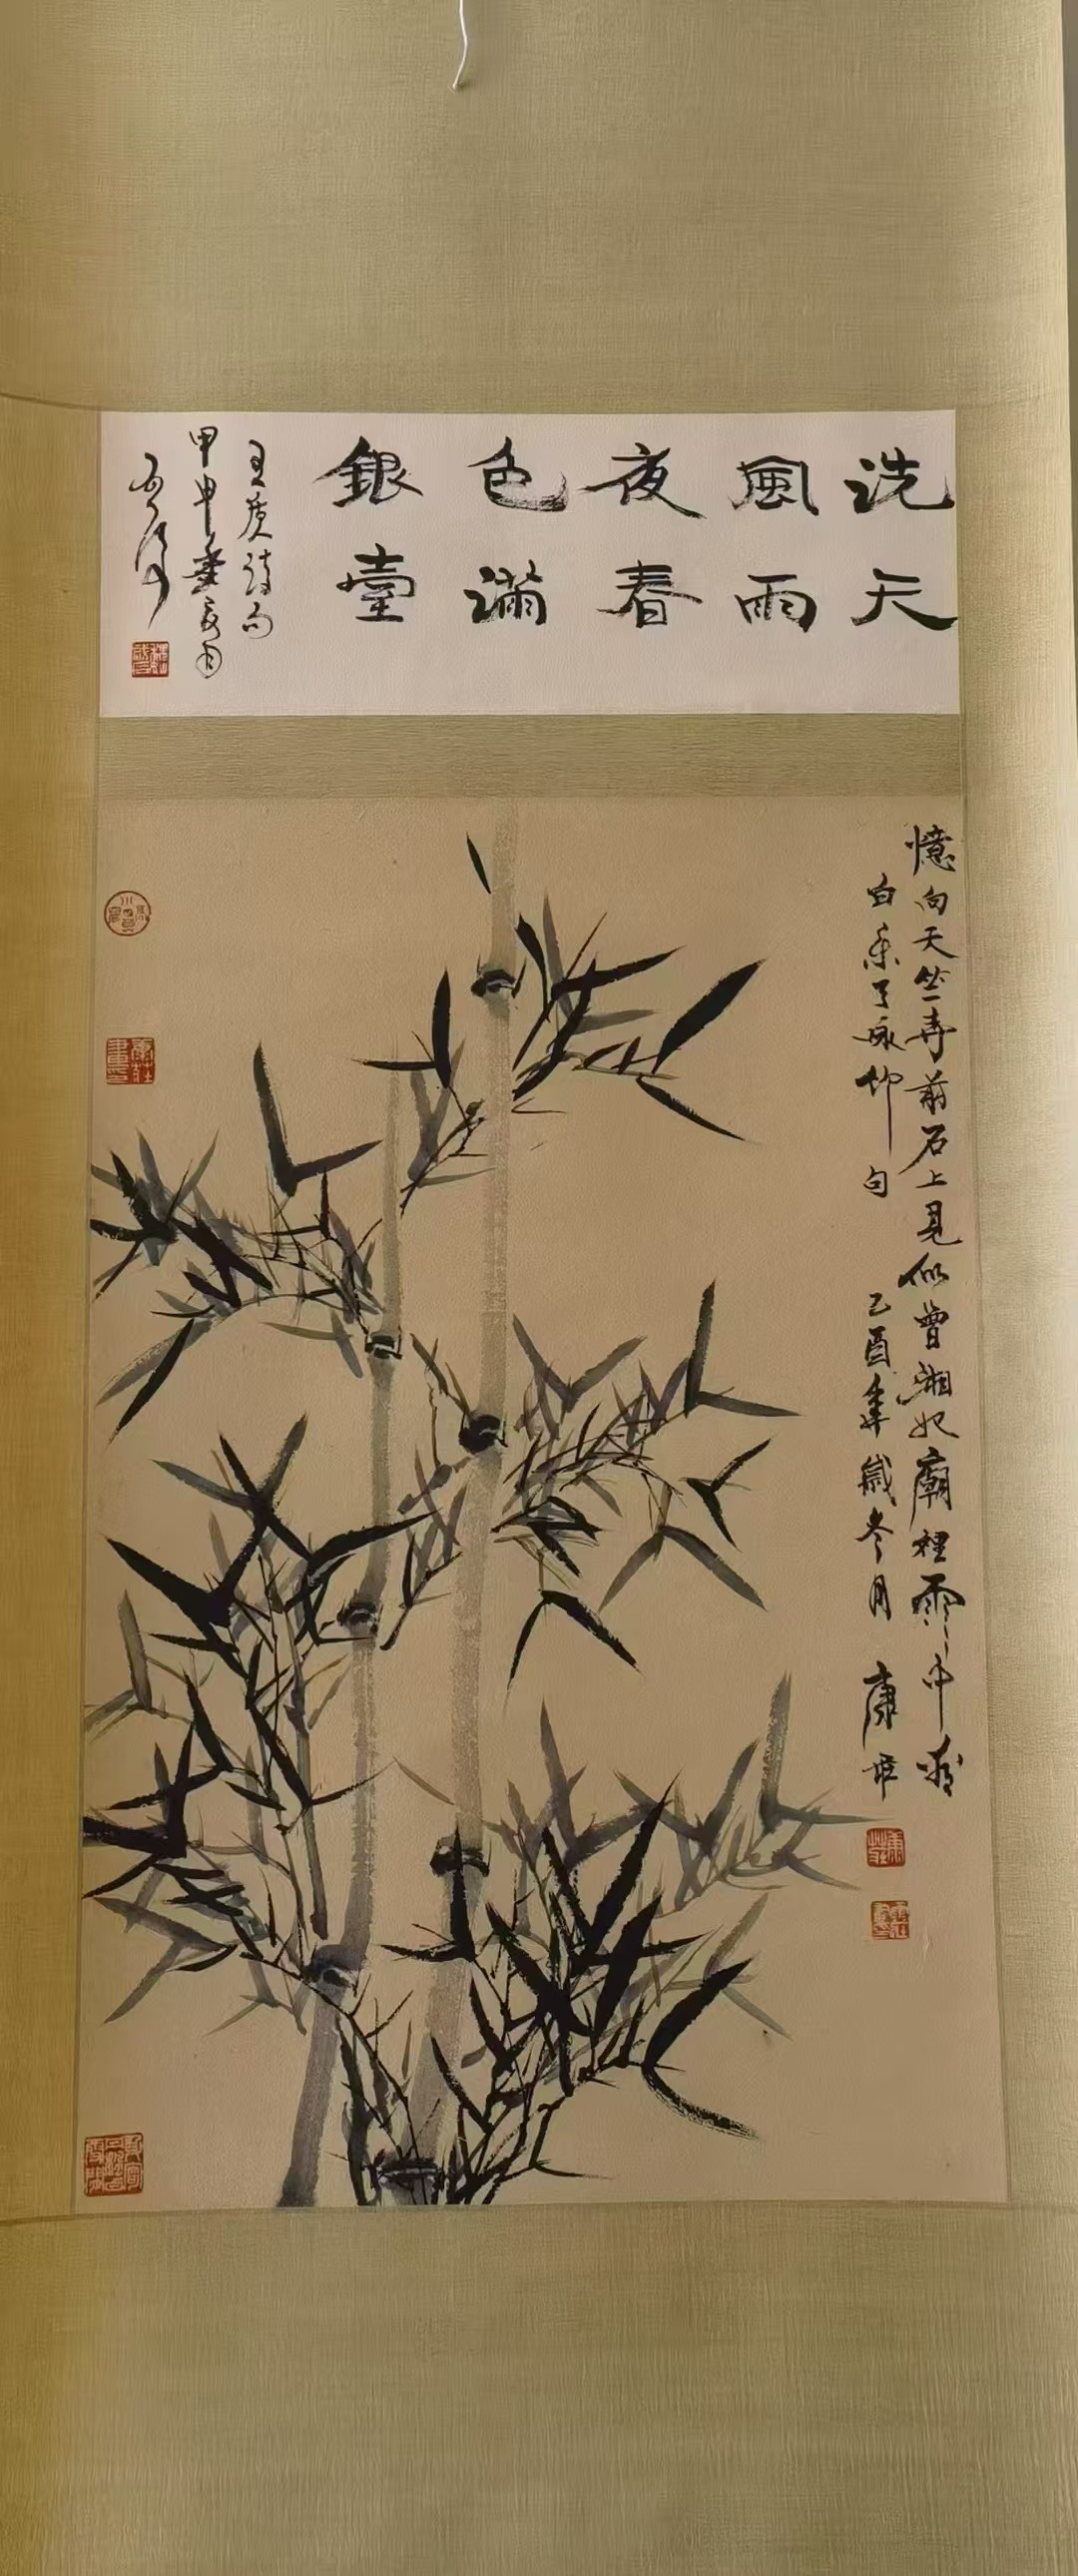 洗天
風雨
夜春
色滿
銀臺
王質詩句
甲申
憶向天竺寺前石上見似曾湘妃廟裡雨中看
白樂天咏竹句 乙酉年歲冬月 康莊